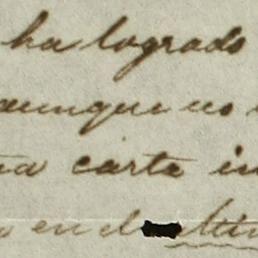 ha logrado
aunque no
carta
en el